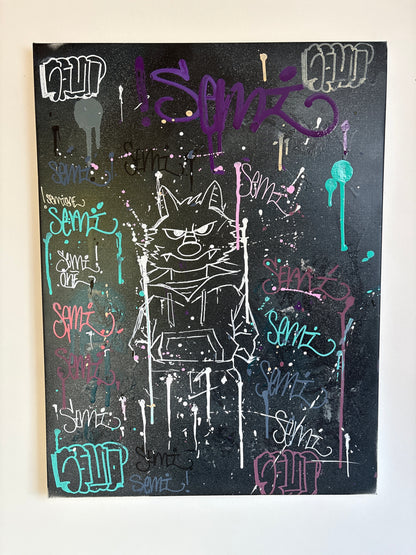 !Semi
Semi
Semi!
Semi
Semi
Semi
Semi!
ONE
Semi
Semi
Semi
Semi
Semi
Semi
Semi
Semi
Semi!